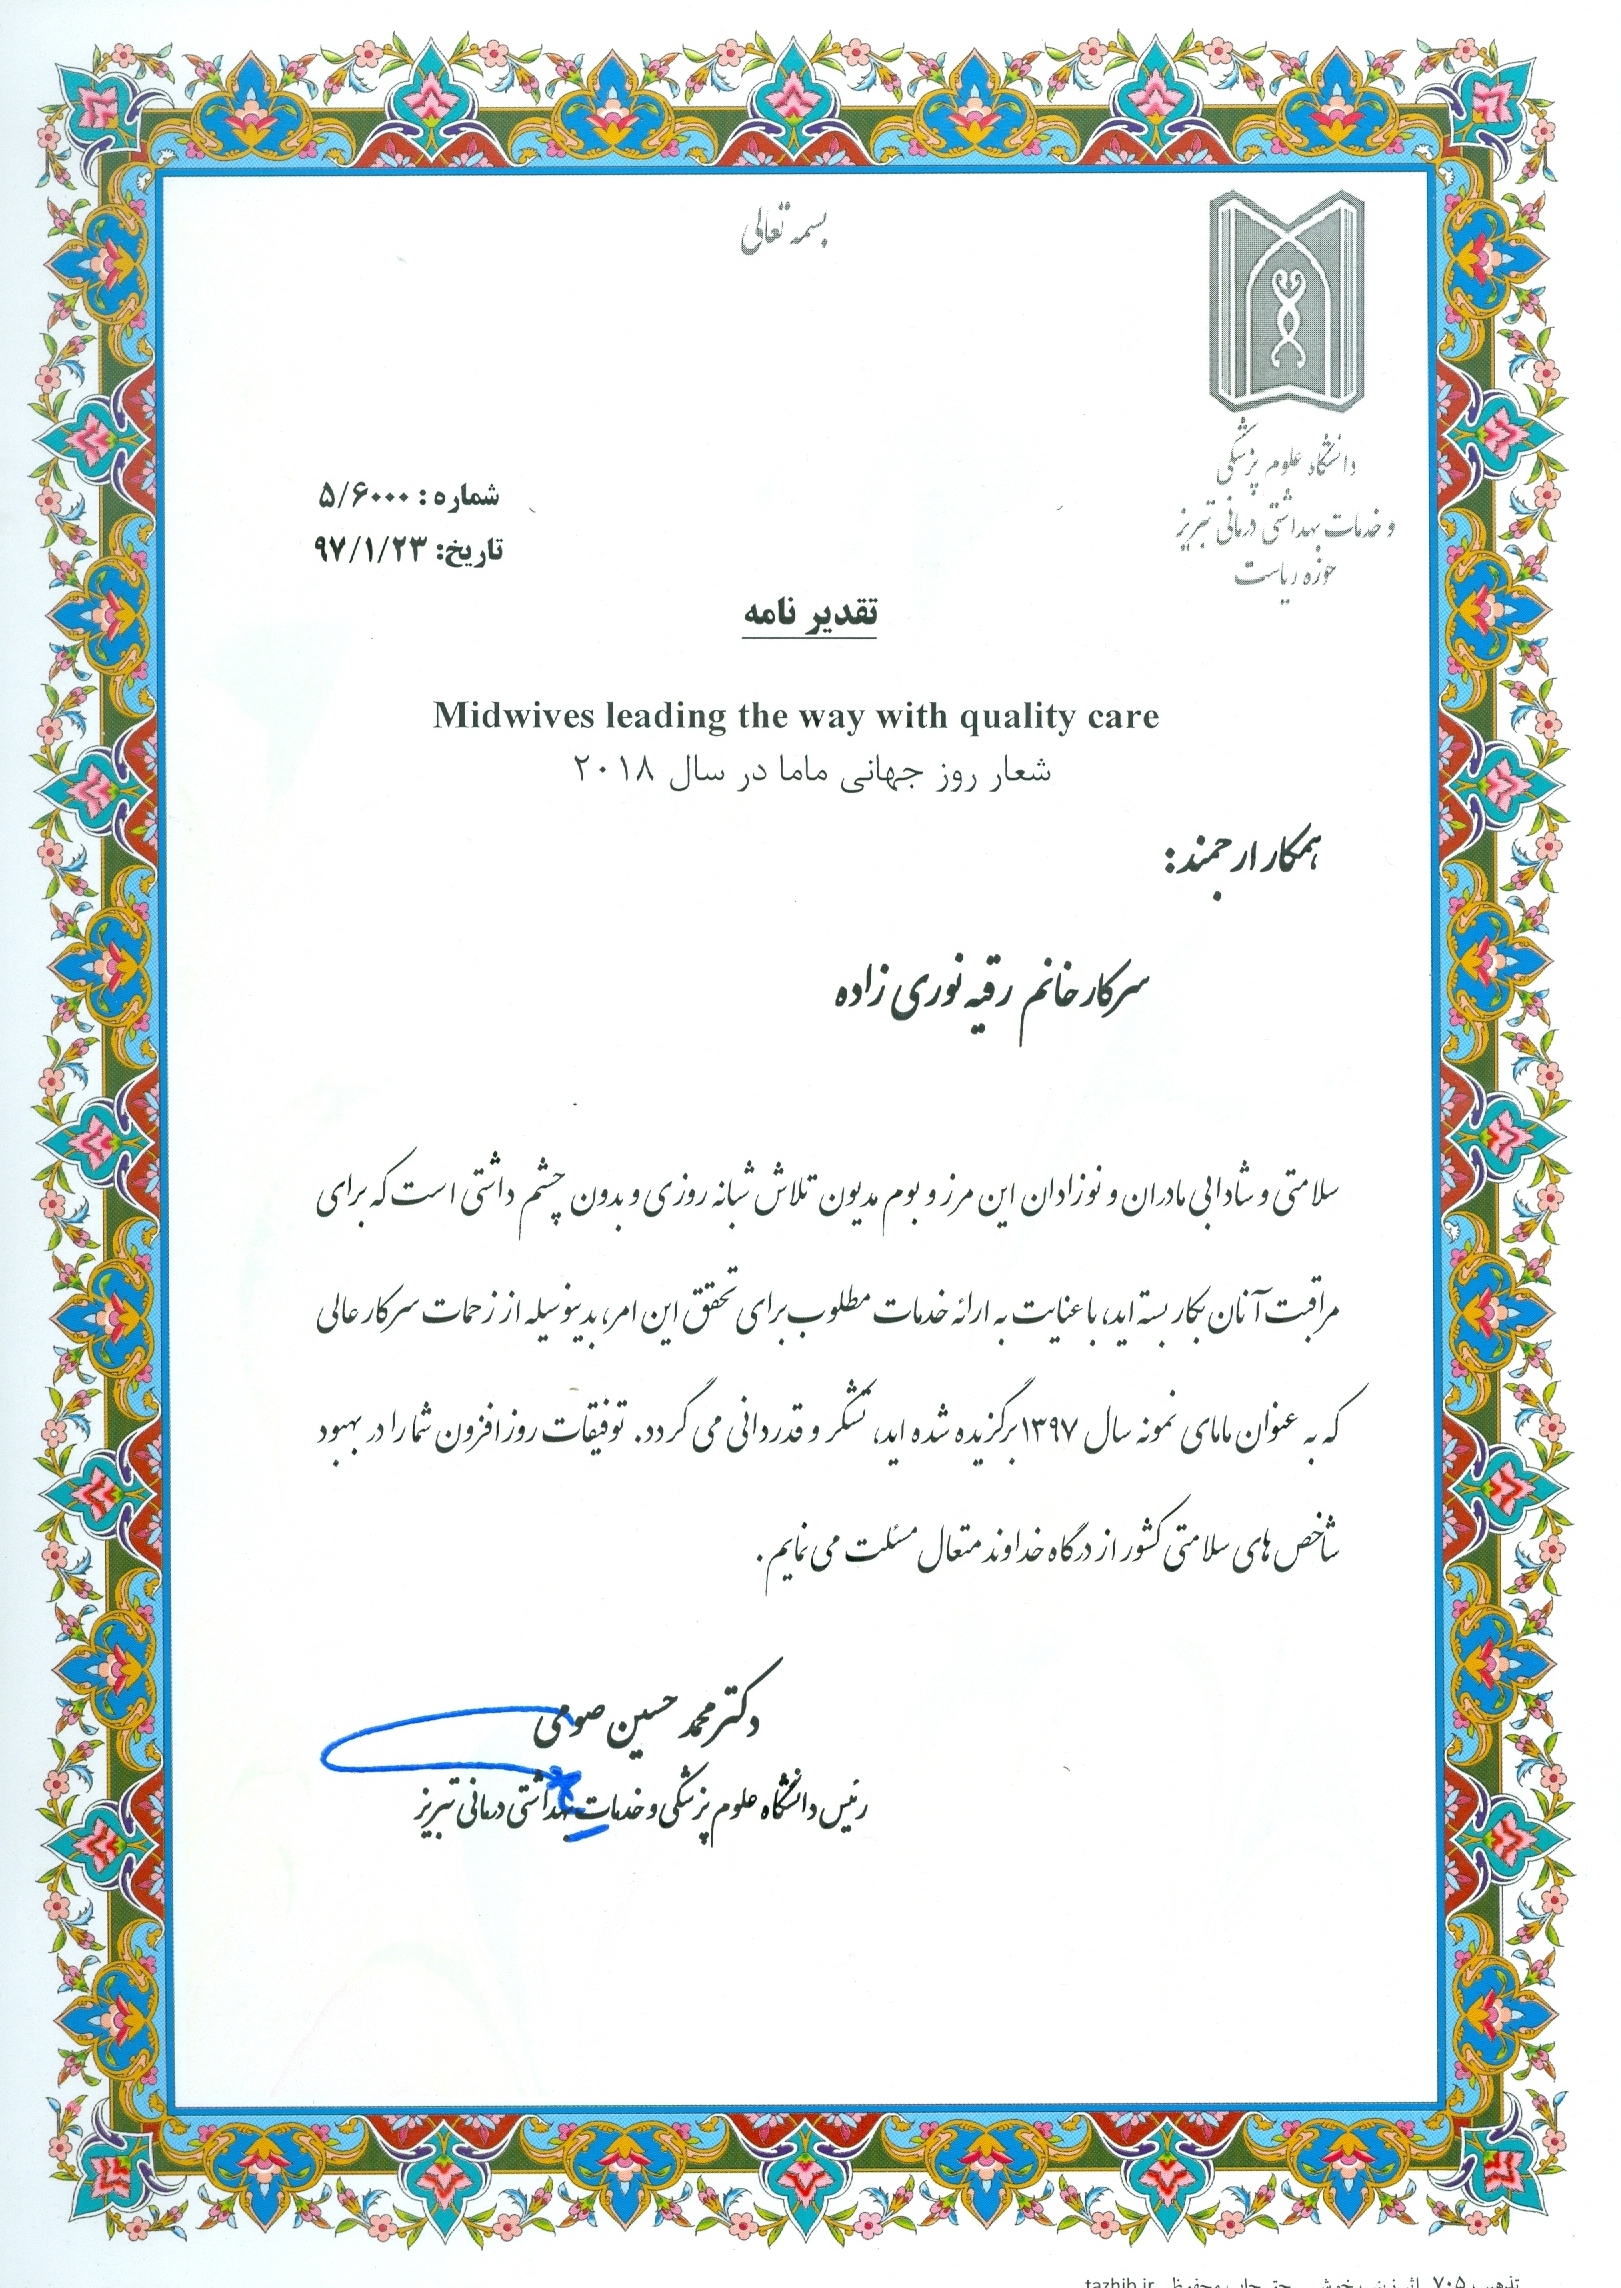 بسمه تعالی
دانشگاه علوم پزشکی
و خدمات بهداشتی درمانی تبریز
حوزه ریاست
شماره : ۵/۶۰۰۰
تاریخ: ۹۷/۱/۲۳
تقدیر نامه
Midwives leading the way with quality care
شعار روز جهانی ماما در سال ۲۰۱۸
همکار ارجمند:
سرکار خانم رقیه نوری زاده
سلامتی و شادابی مادران و نوزادان این مرز و بوم مدیون تلاش شبانه روزی و بدون چشم داشتی است که برای
مراقبت آنان بکار بسته اید، با عنایت به ارائه خدمات مطلوب برای تحقق این امر، بدینوسیله از زحمات سرکار عالی
که به عنوان مامای نمونه سال ۱۳۹۷ برگزیده شده اید، تشکر و قدردانی می گردد. توفیقات روز افزون شما را در بهبود
شاخص های سلامتی کشور از درگاه خداوند متعال مسئلت می نمایم.
دکتر محمد حسین صومی
رئیس دانشگاه علوم پزشکی و خدمات بهداشتی درمانی تبریز
tazhib.ir